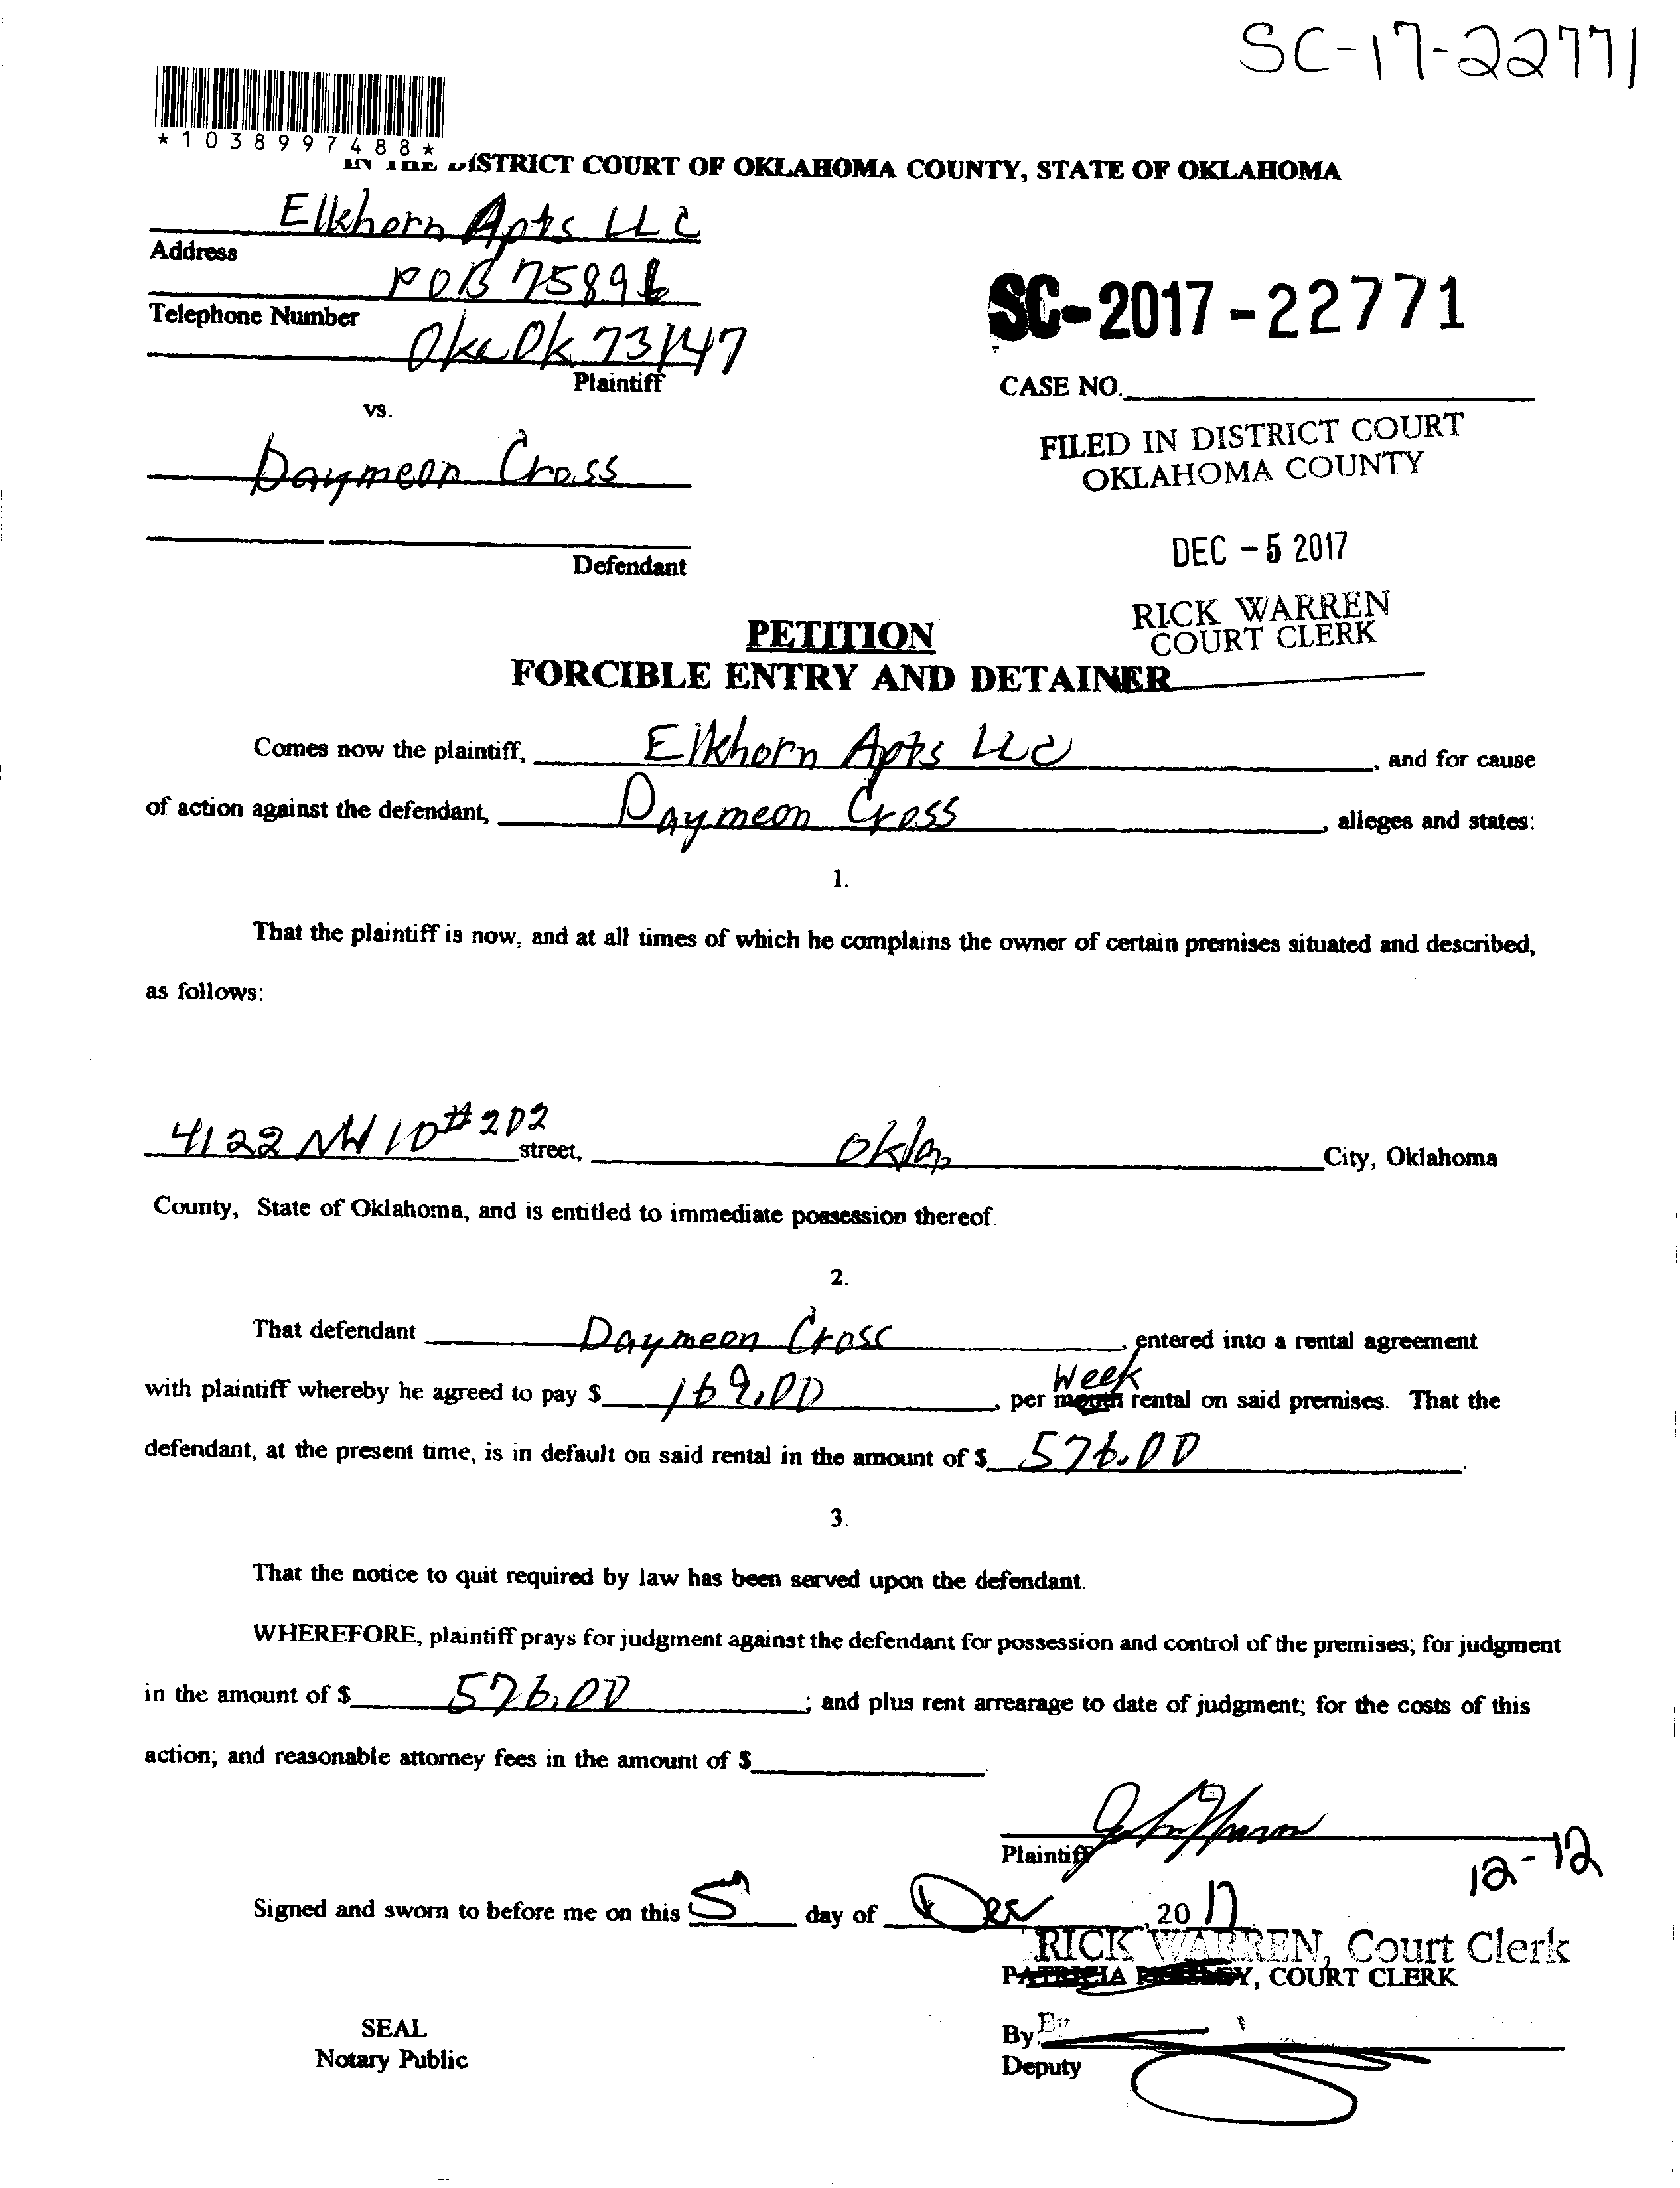 SC-17-22771
*1038997488*
IN THE DISTRICT COURT OF OKLAHOMA COUNTY, STATE OF OKLAHOMA
Elkhorn Apts LLC
Address
POB 75896
Telephone Number
Okc Ok 73147
Plaintiff
SC-2017-22771
CASE NO.
vs.
Daymeon Cross
Defendant
FILED IN DISTRICT COURT
OKLAHOMA COUNTY
DEC -5 2017
RICK WARREN
COURT CLERK
PETITION
FORCIBLE ENTRY AND DETAINER
Comes now the plaintiff, Elkhorn Apts LLC, and for cause
of action against the defendant, Daymeon Cross, alleges and states:
1.
That the plaintiff is now, and at all times of which he complains the owner of certain premises situated and described,
as follows:
4122 NW 10 #202 street, Okla City, Oklahoma
County, State of Oklahoma, and is entitled to immediate possession thereof.
2.
That defendant Daymeon Cross, entered into a rental agreement
Week
with plaintiff whereby he agreed to pay $ 169.00, per month rental on said premises. That the
defendant, at the present time, is in default on said rental in the amount of $ 576.00.
3.
That the notice to quit required by law has been served upon the defendant.
WHEREFORE, plaintiff prays for judgment against the defendant for possession and control of the premises; for judgment
in the amount of $ 576.00; and plus rent arrearage to date of judgment; for the costs of this
action; and reasonable attorney fees in the amount of $.
Plaintiff
12-12
Signed and sworn to before me on this 5 day of Dec, 2017
RICK WARREN, Court Clerk
PATRICIA PRESLEY, COURT CLERK
SEAL
Notary Public
By
Deputy